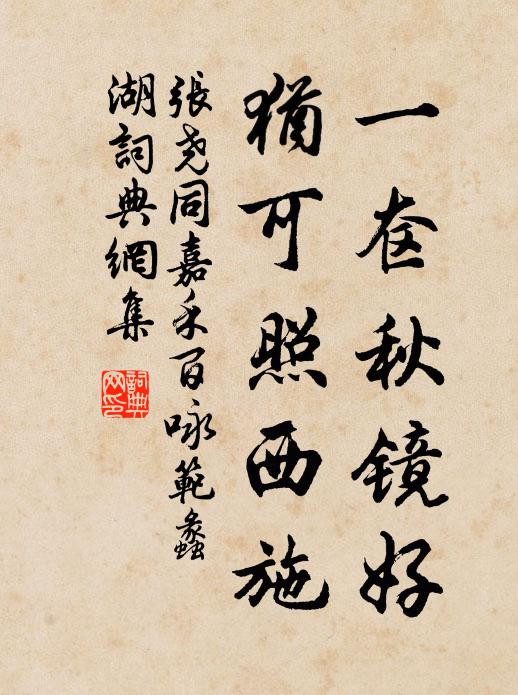 一奁秋镜好
猶可照西施
張堯同嘉禾百咏範蠡
湖詞典網集
詞典
网印